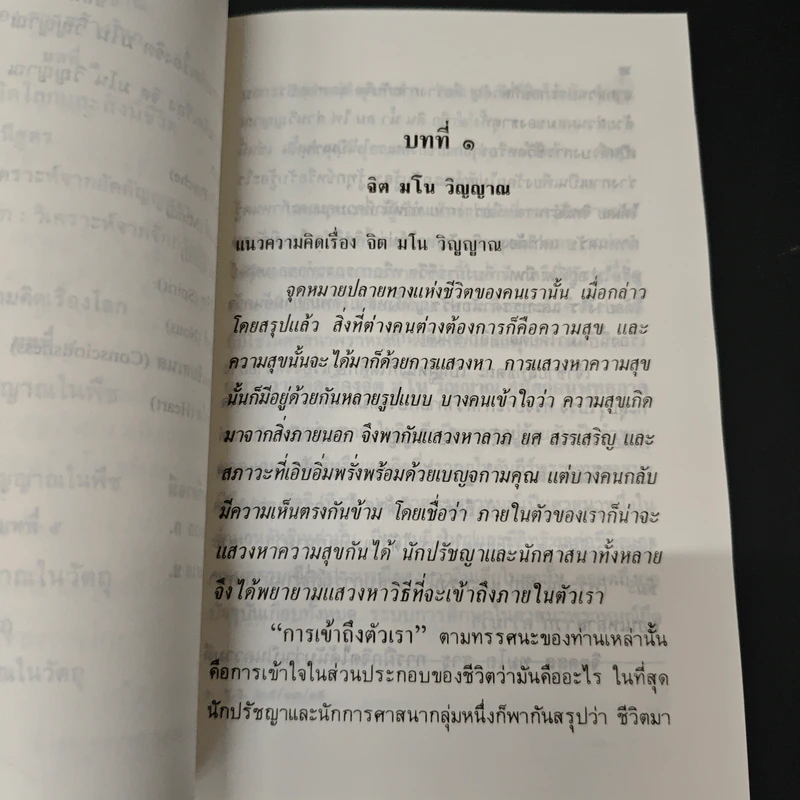 บทที่ ๑
จิต มโน วิญญาณ
แนวความคิดเรื่อง จิต มโน วิญญาณ
จุดหมายปลายทางแห่งชีวิตของคนเรานั้น เมื่อกล่าว
โดยสรุปแล้ว สิ่งที่ต่างคนต่างต้องการก็คือความสุข และ
ความสุขนั้นจะได้มาก็ด้วยการแสวงหา การแสวงหาความสุข
นั้นก็มีอยู่ด้วยกันหลายรูปแบบ บางคนเข้าใจว่า ความสุขเกิด
มาจากสิ่งภายนอก จึงพากันแสวงหาลาภ ยศ สรรเสริญ และ
สภาวะที่เอิบอิ่มพรั่งพร้อมด้วยเบญจกามคุณ แต่บางคนกลับ
มีความเห็นตรงกันข้าม โดยเชื่อว่า ภายในตัวของเราก็น่าจะ
แสวงหาความสุขกันได้ นักปรัชญาและนักศาสนาทั้งหลาย
จึงได้พยายามแสวงหาวิธีที่จะเข้าถึงภายในตัวเรา
“การเข้าถึงตัวเรา” ตามทรรศนะของท่านเหล่านั้น
คือการเข้าใจในส่วนประกอบของชีวิตว่ามันคืออะไร ในที่สุด
นักปรัชญาและนักการศาสนากลุ่มหนึ่งก็พากันสรุปว่า ชีวิตมา